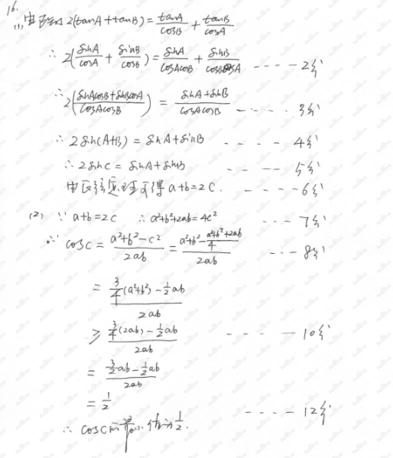 16.
(1) 由已知 2(tanA+tanB)=tanA/cosB+tanB/cosA
∴ 2(sinA/cosA+sinB/cosB)=sinA/(cosAcosB)+sinB/(cosBcosA) ----2分
∴ 2((sinAcosB+sinBcosA)/(cosAcosB))=(sinA+sinB)/(cosAcosB) ----3分
∴ 2sin(A+B)=sinA+sinB ----4分
∴ 2sinC=sinA+sinB ----5分
由正弦定理可得 a+b=2C. ----6分
(2) ∵ a+b=2C ∴ a²+b²+2ab=4C² ----7分
∴ cosC=(a²+b²-c²)/2ab=(a²+b²-(a²+b²+2ab)/4)/2ab ----8分
=(3/4(a²+b²)-1/2ab)/2ab
≥(3/4(2ab)-1/2ab)/2ab ----10分
=(3/2ab-1/2ab)/2ab
=1/2
∴ cosC 值为1/2. ----12分